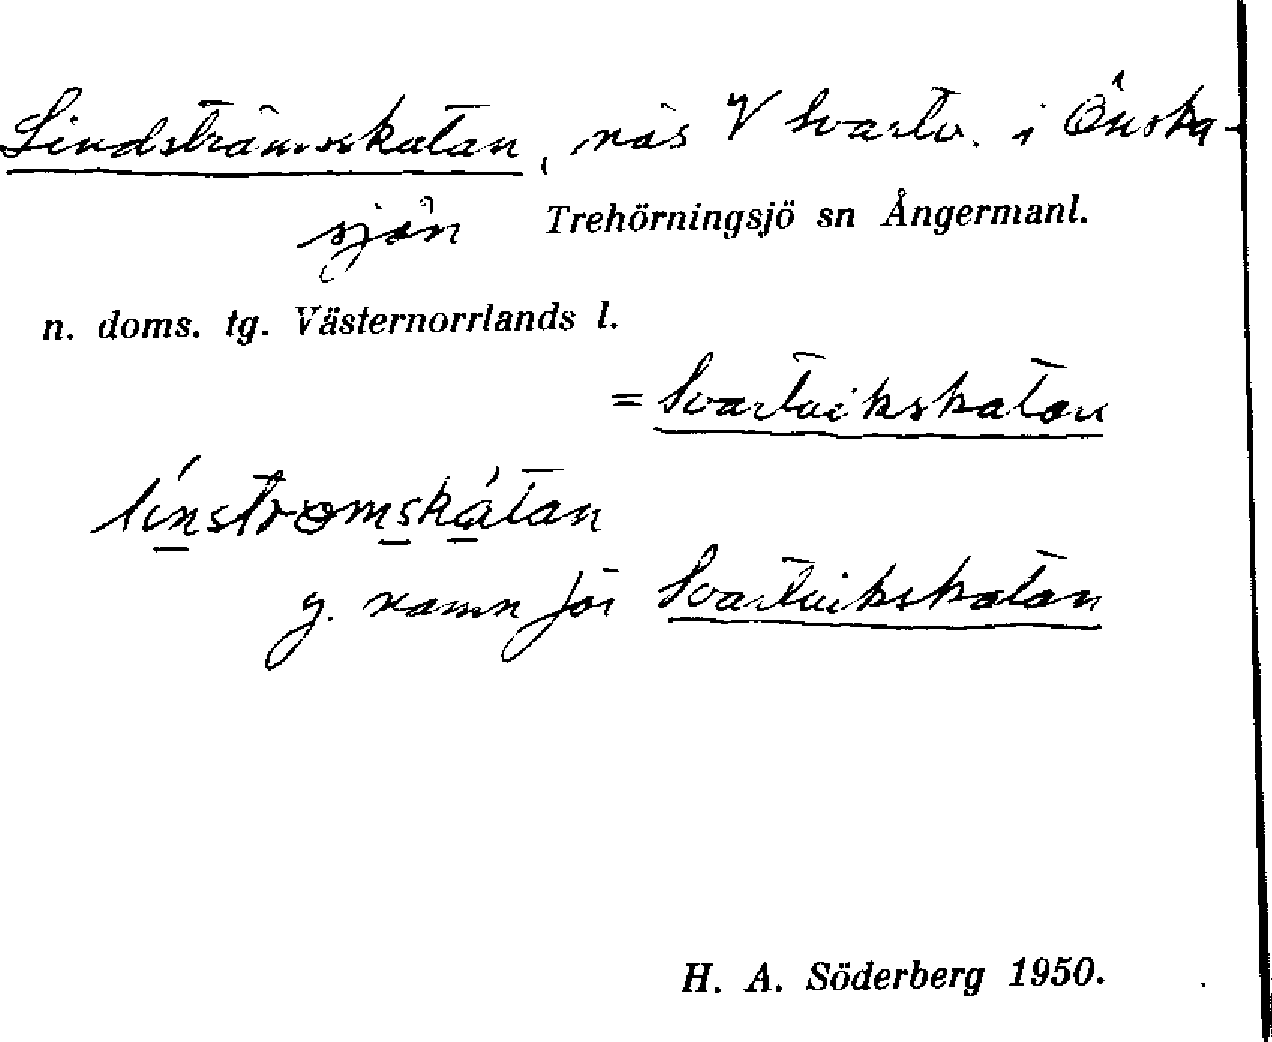 Lindströmskatan, näs V Svartv. i Önska-
sjön Trehörningsjö sn Ångermanl.
n. doms. tg. Västernorrlands l.
= Svartvikskatan
línstromskátan
y. namn för Svartvikskatan
H. A. Söderberg 1950.